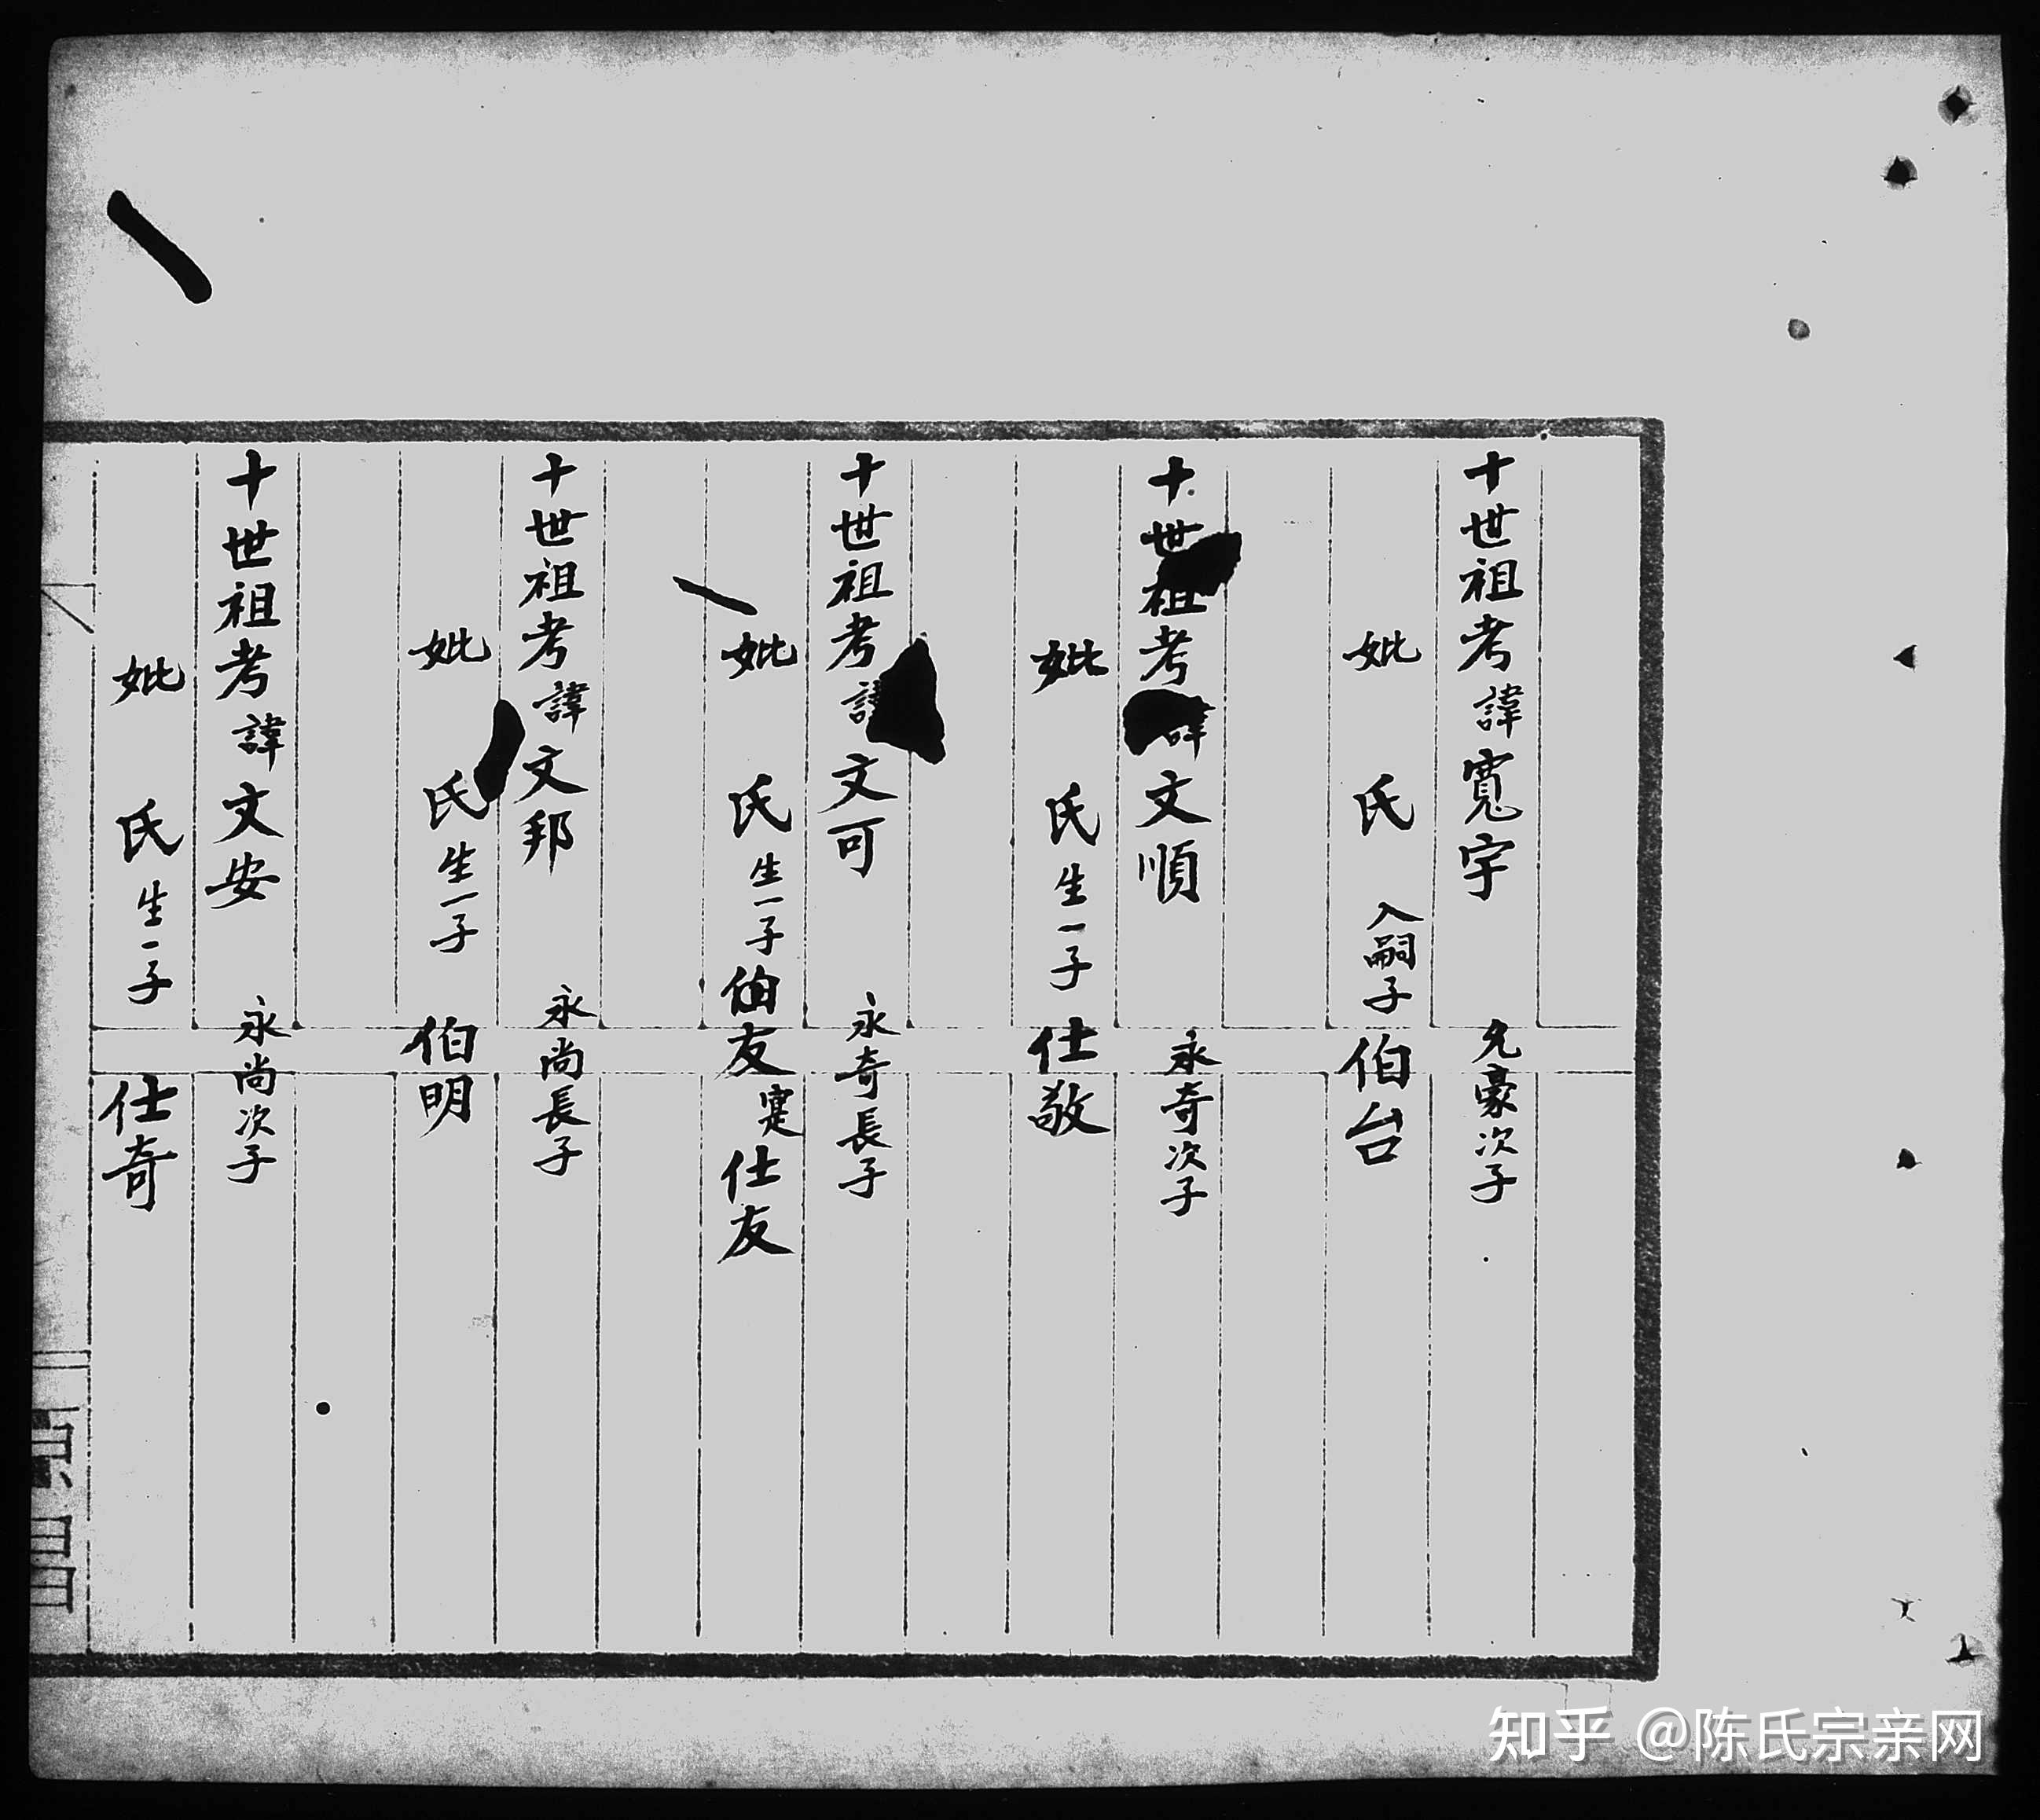 十世祖考諱寬宇 允豪次子
妣 氏 入嗣子伯台
十世祖考諱文順 永奇次子
妣 氏生一子 仕敬
十世祖考諱文可 永奇長子
妣 氏生一子伯友 寔仕友
十世祖考諱文邦 永尚長子
妣 氏生一子 伯明
十世祖考諱文安 永尚次子
妣 氏生一子 仕奇
知乎 @陈氏宗亲网